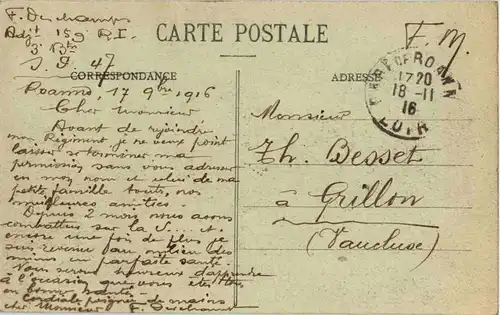 F. Deschamps
Adjt 159 R.I.
3e Btn
S.P. 47
CARTE POSTALE
F. M.
CORRESPONDANCE
ADRESSE
GARE DE ROANNE
1720
18-11
16
LOIRE
Roanne, 17 9bre 1916
Cher Monsieur
Avant de rejoindre
mon Régiment je ne veux point
laisser terminer ma
permission sans vous adresser
en mon nom et celui de ma
petite famille toutes nos
meilleures amitiés.
Depuis 2 mois nous avons
combattu sur la S... et
encore une fois de plus je
suis revenu au milieu des
miens en parfaite santé.
Vous serez heureux d'apprendre
à l'occasion que vous êtes
en bonne santé.
Cordiale poignée de mains
cher Monsieur F. Deschamps
Monsieur
Th. Besset
à Grillon
(Vaucluse)